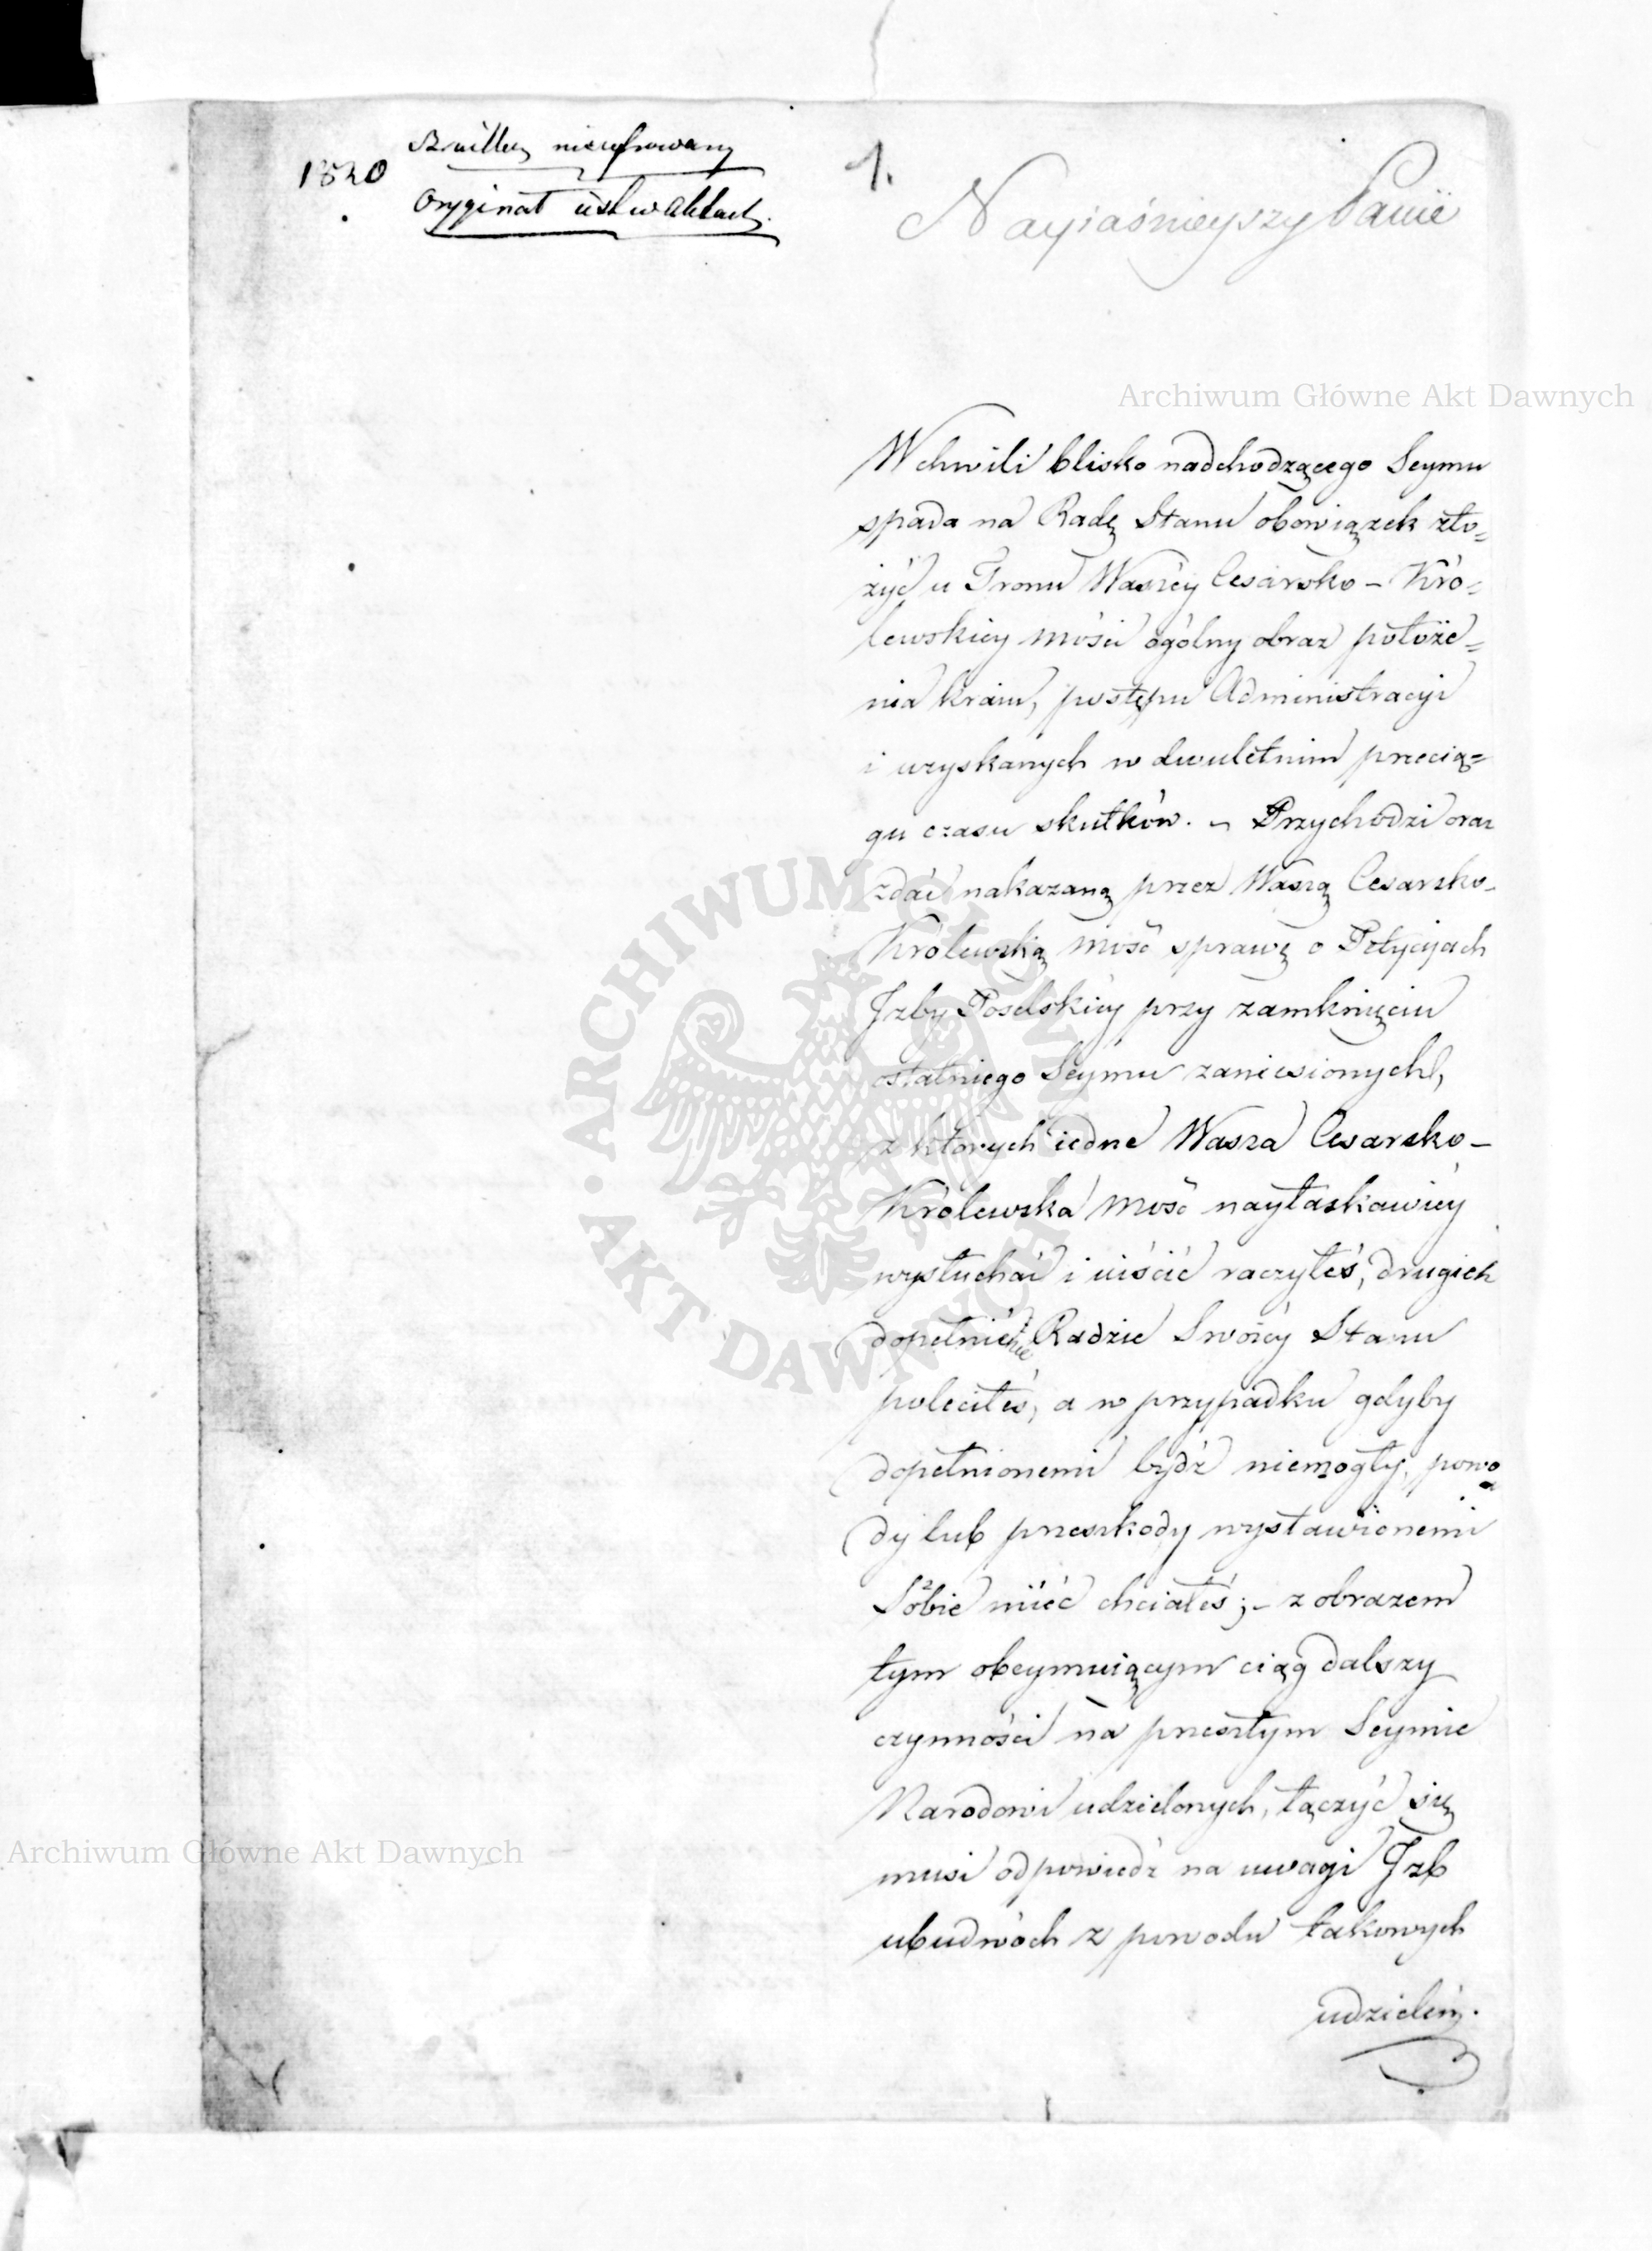 1820
Oryginał iest w aktach.
1.
Nayiaśnieyszy Panie
Archiwum Główne Akt Dawnych
W chwili blisko nadchodzącego Seymu
spada na Radę Stanu obowiązek zło=
żyć u Tronu Waszey Cesarsko - Kró=
lewskiey Mości ogólny obraz położe=
nia kraiu, postępu Administracyi
i uzyskanych w dwuletnim przecią=
gu czasu skutków. - Przychodzi oraz
zdać nakazaną przez Waszą Cesarsko-
Królewską Mość sprawę o Petycyach
Izby Poselskiey przy zamknięciu
ostatniego Seymu zaniesionych,
z których iedne Wasza Cesarsko-
Królewska Mość nayłaskawiey
wysłuchać i uiścić raczyłeś, drugich
dopełnienie Radzie Swoiey Stanu
poleciłeś, a w przypadku gdyby
dopełnionemi bydź niemogły, powo
dy lub przeszkody wystawionemi
Sobie mieć chciałeś; - z obrazem
tym obeymuiącym ciąg dalszy
czynności na przeszłym Seymie
Narodowi udzielonych, łączyć się
musi odpowiedź na uwagi Izb
ubudwóch z powodu takowych
udzieleń.
ARCHIWUM GŁÓWNE AKT DAWNYCH
Archiwum Główne Akt Dawnych